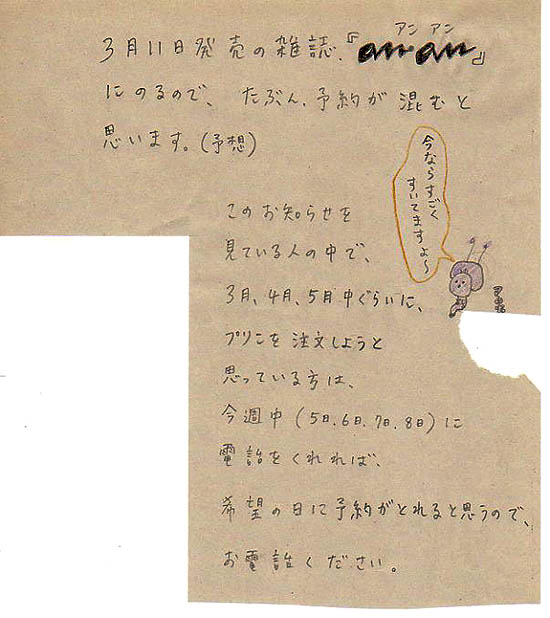 3月11日発売の雑誌、『anan』
アン アン
にのるので、たぶん、予約が混むと
思います。(予想)
今ならすごく
すいてますよ〜
このお知らせを
見ている人の中で、
3月、4月、5月中ぐらいに、
プリンを注文しようと
思っている方は、
今週中(5日、6日、7日、8日)に
電話をくれれば、
希望の日に予約がとれると思うので、
お電話ください。